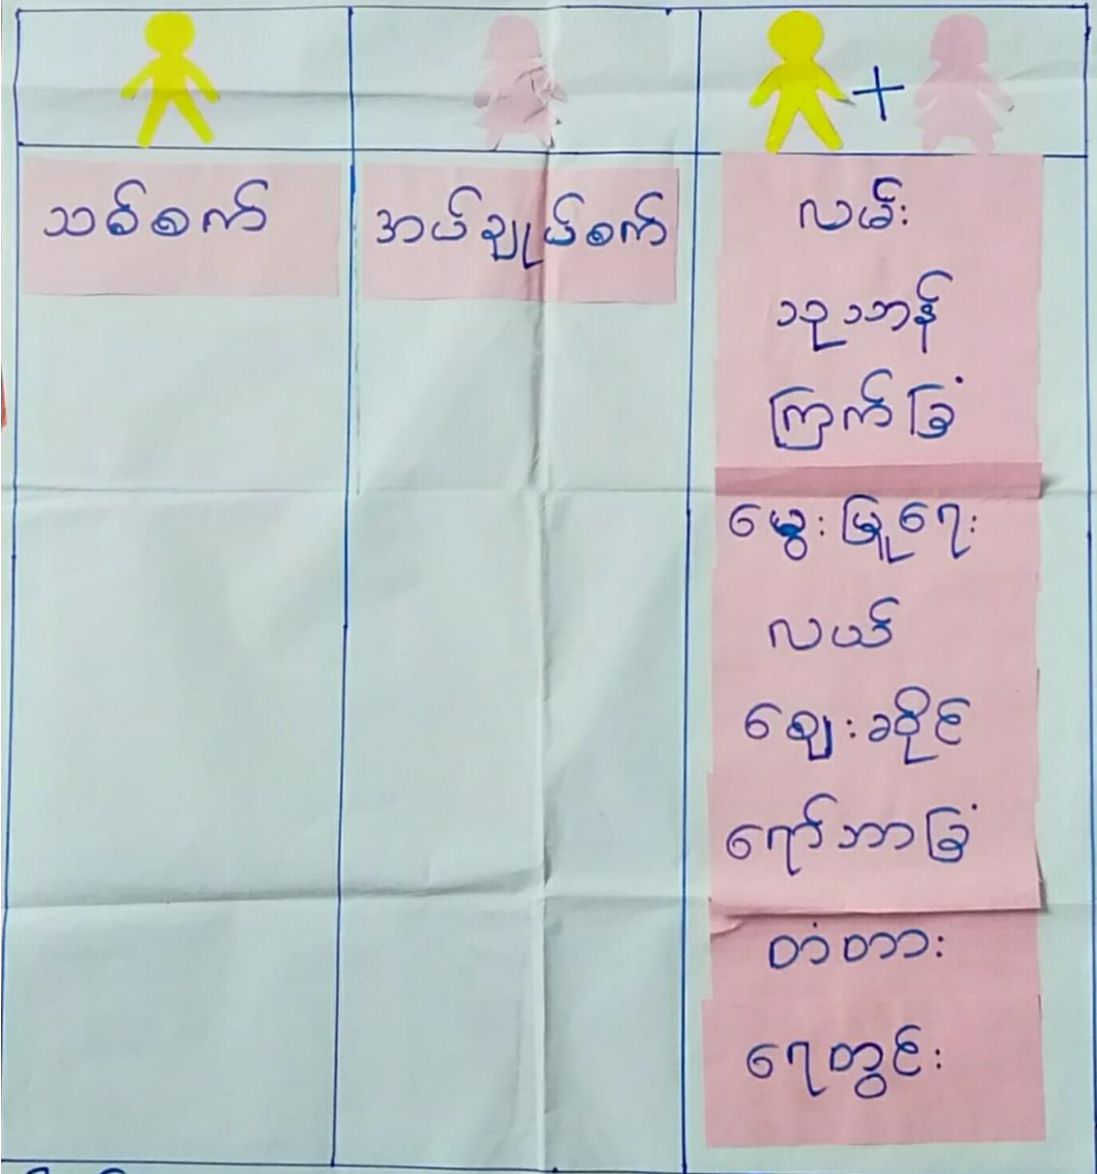 +
သစ်စက် အပ်ချုပ်စက် လမ်း
ကြက်ခြံ
မွေးမြူရေး
လယ်
ဈေးဆိုင်
ရော်ဘာခြံ
တံတား
ရေတွင်း